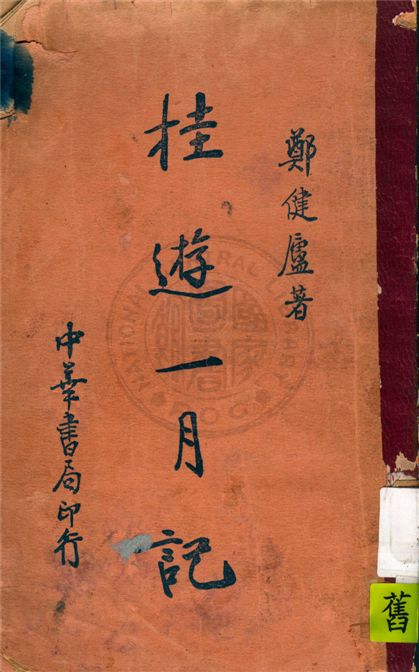 鄭健廬著
桂遊一月記
中華書局印行
舊
NATIONAL CENTRAL LIBRARY